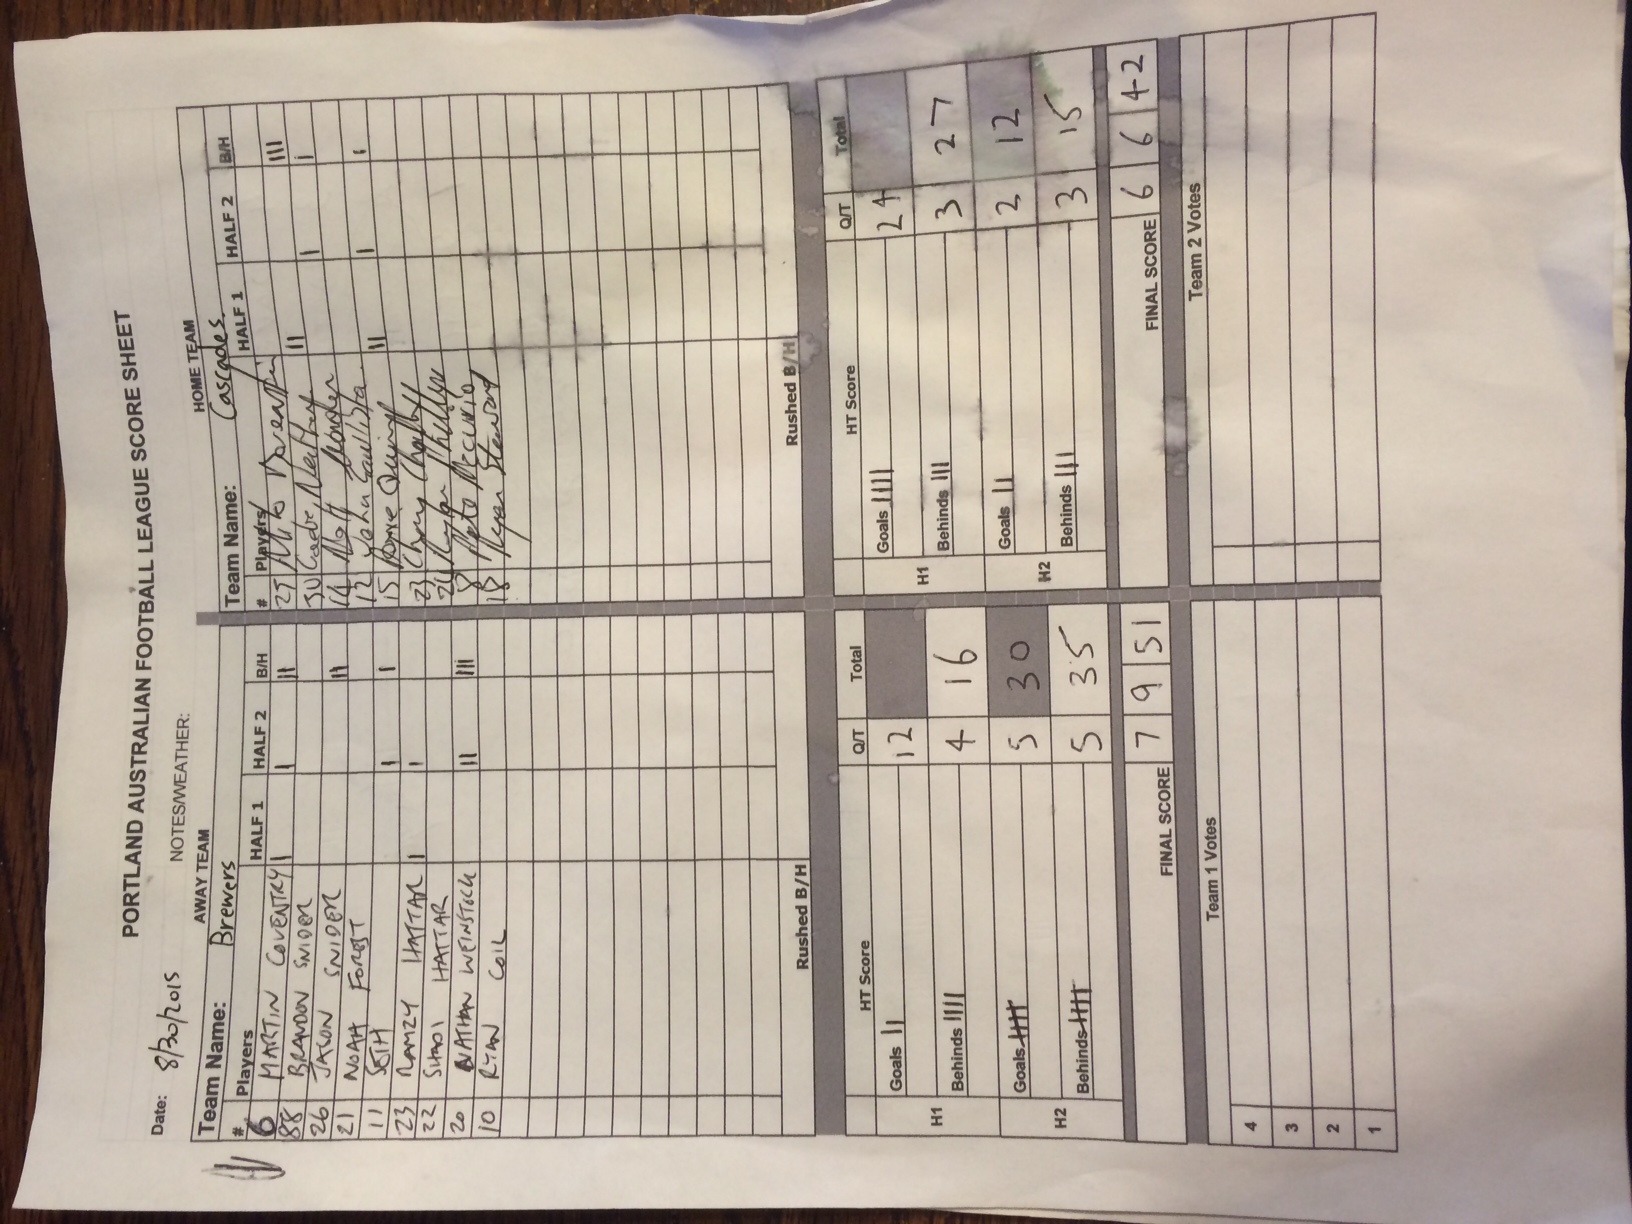 PORTLAND AUSTRALIAN FOOTBALL LEAGUE SCORE SHEET
Date: 8/30/2015 NOTES/WEATHER:
AWAY TEAM HOME TEAM
Team Name: Brewers Team Name: Cascades
# Players HALF 1 HALF 2 B/H # Players HALF 1 HALF 2 B/H
6 MARTIN COVENTRY I I II 25 Mike III
88 BRANDON SNIDER 30 Gabe II I
26 JASON SNIDER II 14 Matt I
21 NOAH FOREST 12 John I I
11 SETH I I 15 Quinn II
23 RAMZY HATTAR I I 23
22 SHADI HATTAR
20 NATHAN WEINSTOCK II III 8 Nate
10 RYAN COIL 18 Ryan Steward
Rushed B/H Rushed B/H
HT Score Q/T Total HT Score Q/T Total
H1 Goals II 12 H1 Goals IIII 24
Behinds IIII 4 16 Behinds III 3 27
H2 Goals IIII 5 30 H2 Goals II 2 12
Behinds IIII 5 35 Behinds III 3 15
FINAL SCORE 7 9 51 FINAL SCORE 6 6 42
Team 1 Votes Team 2 Votes
4
3
2
1